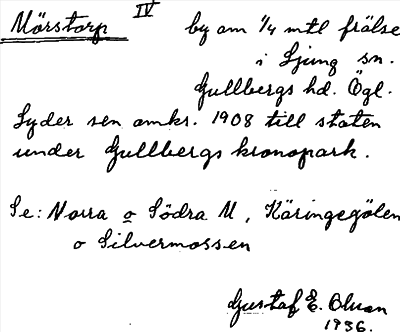 Mörstorp IV by om 1/4 mtl frälse
i Ljung sn.
Gullbergs hd. Ögl.
Lyder sen omkr. 1908 till staten
under Gullbergs kronopark.
Se: Norra o Södra M, Käringegölen
o Silvermossen
Gustaf E. Olson
1936.